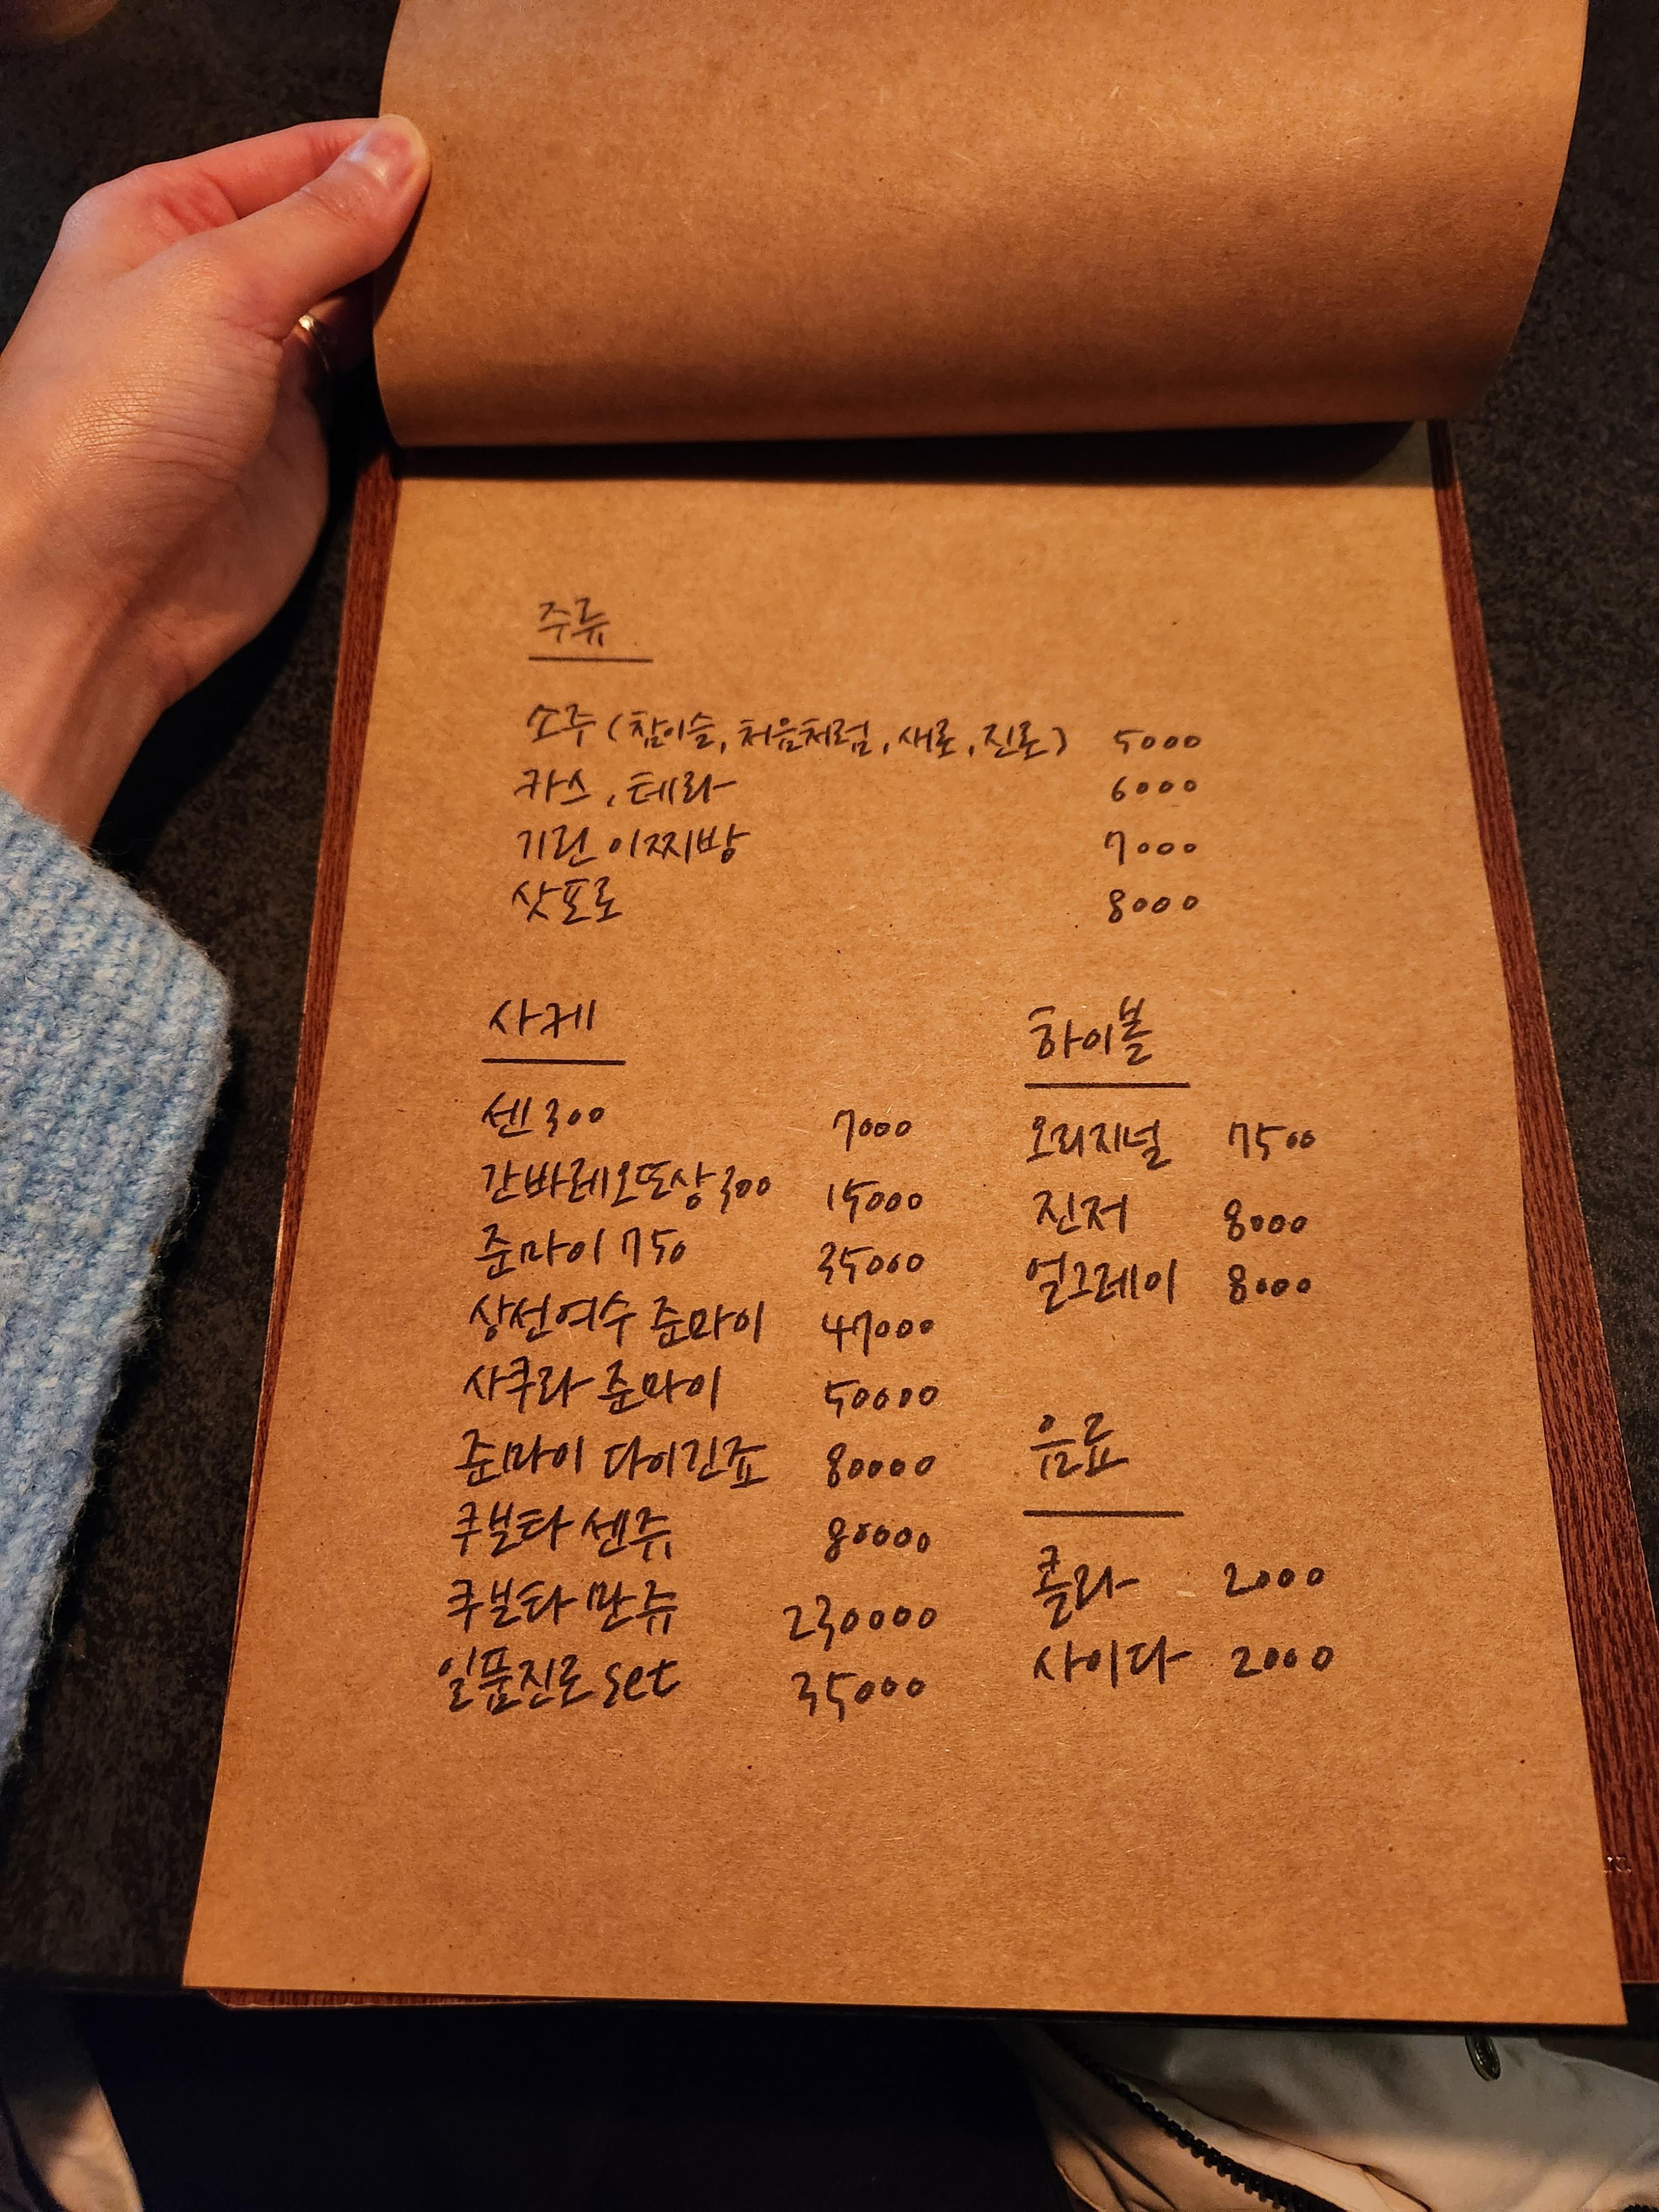 주류
소주 (참이슬, 처음처럼, 새로, 진로) 5000
카스, 테라 6000
기린 이찌방 7000
삿포로 8000
사케
센 300 7000
간바레오또상 300 15000
준마이 750 35000
상선여수 준마이 47000
사쿠라 준마이 50000
준마이 다이긴죠 80000
쿠보타 센쥬 80000
쿠보타 만쥬 230000
일품진로 set 35000
하이볼
오리지널 7500
진저 8000
얼그레이 8000
음료
콜라 2000
사이다 2000